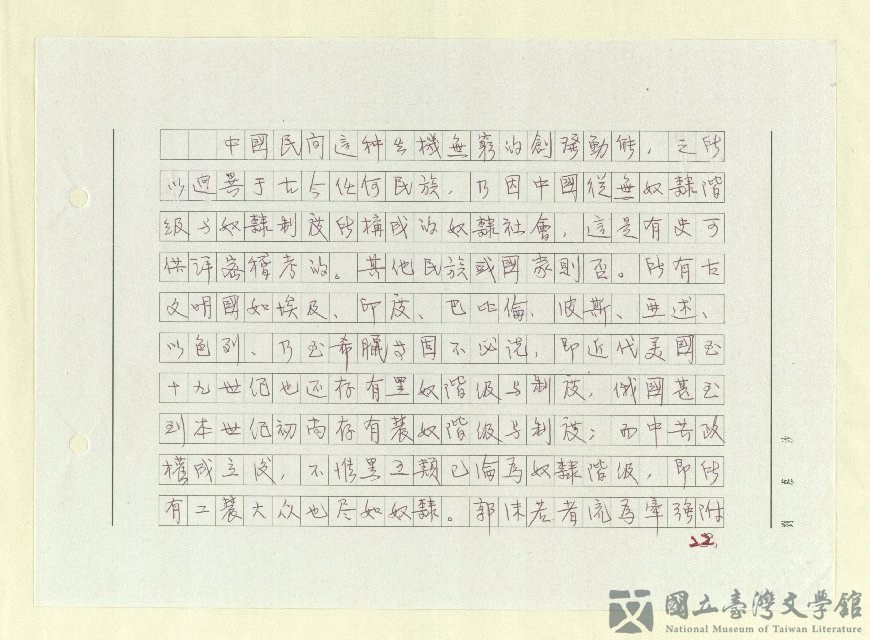 中國民间这种生機無窮的創發動能，之所
以迥異于古今任何民族，乃因中國從無奴隸階
級与奴隸制度所構成的奴隸社會，這是有史可
供詳密稽考的。其他民族或國家則否。所有古
文明國如埃及、印度、巴比倫、波斯、亚述、
以色列、乃至希臘等固不必说，即近代美國至
十九世纪也还存有黑奴階级与制度，俄國甚至
到本世纪初尚存有農奴階级与制度；而中共政
權成立後，不惟黑五類已淪為奴隸階级，即所
有工農大众也尽如奴隸。郭沫若者流為牽強附
22
國立臺灣文學館
National Museum of Taiwan Literature